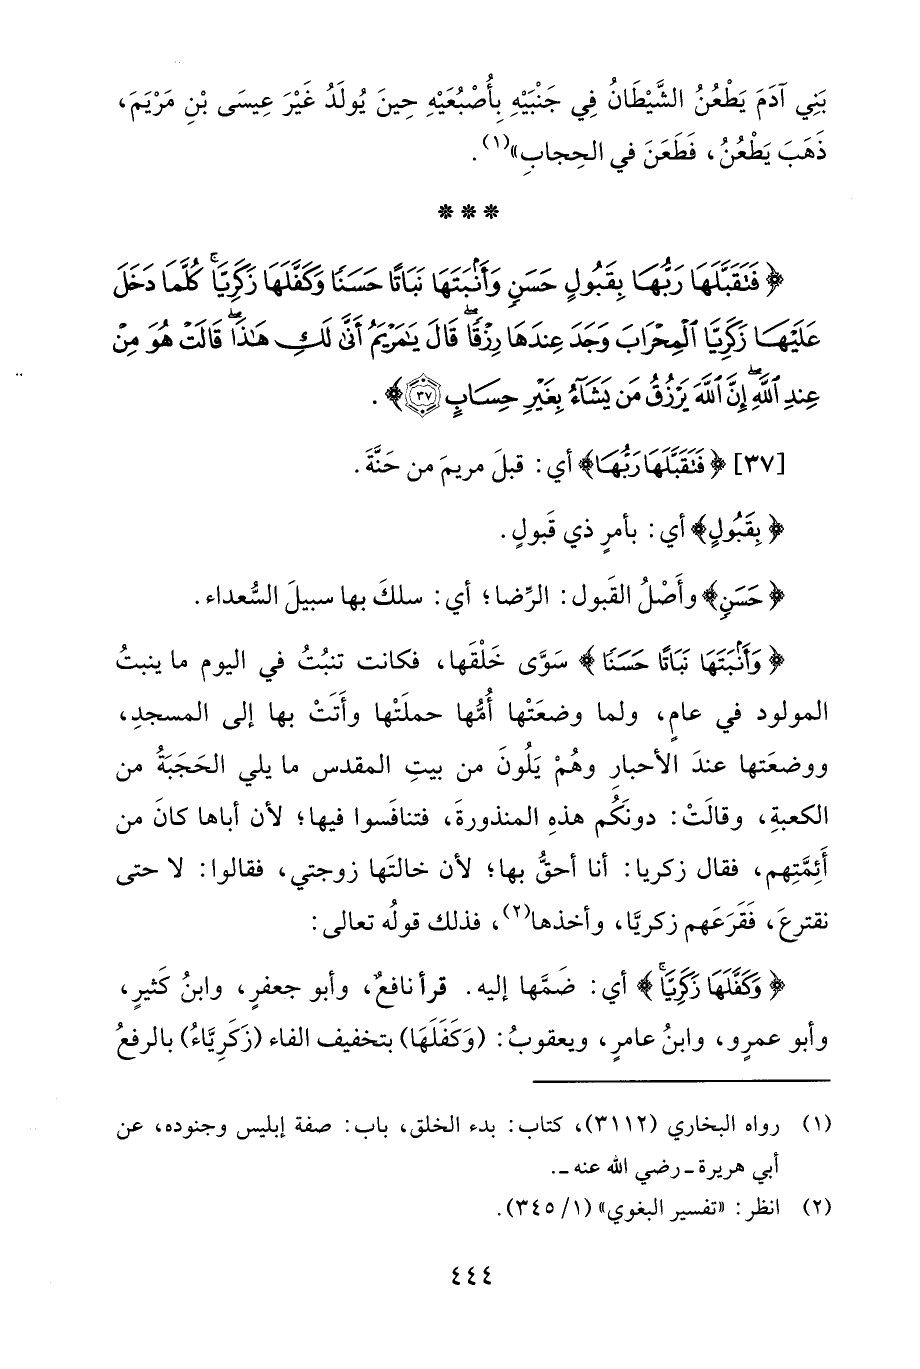 بَنِي آدَمَ يَطْعُنُ الشَّيْطَانُ فِي جَنْبَيْهِ بِأُصْبُعَيْهِ حِينَ يُولَدُ غَيْرَ عِيسَى بْنِ مَرْيَمَ،
ذَهَبَ يَطْعُنُ، فَطَعَنَ في الحِجابِ»(١).
* * *
﴿فَتَقَبَّلَهَا رَبُّهَا بِقَبُولٍ حَسَنٍ وَأَنۢبَتَهَا نَبَاتًا حَسَنًا وَكَفَّلَهَا زَكَرِيَّاۚ كُلَّمَا دَخَلَ
عَلَيْهَا زَكَرِيَّا ٱلْمِحْرَابَ وَجَدَ عِندَهَا رِزْقًاۖ قَالَ يَٰمَرْيَمُ أَنَّىٰ لَكِ هَٰذَاۖ قَالَتْ هُوَ مِنْ
عِندِ ٱللَّهِۖ إِنَّ ٱللَّهَ يَرْزُقُ مَن يَشَآءُ بِغَيْرِ حِسَابٍ ٣٧﴾.
[٣٧] ﴿فَتَقَبَّلَهَا رَبُّهَا﴾ أي: قبلَ مريمَ من حَنَّةَ.
﴿بِقَبُولٍ﴾ أي: بأمرٍ ذي قَبولٍ.
﴿حَسَنٍ﴾ وأَصْلُ القَبول: الرِّضا؛ أي: سلكَ بها سبيلَ السُّعداء.
﴿وَأَنۢبَتَهَا نَبَاتًا حَسَنًا﴾ سَوَّى خَلْقَها، فكانت تنبُتُ في اليوم ما ينبتُ
المولود في عامٍ، ولما وضعَتْها أُمُّها حملَتْها وأَتَتْ بها إلى المسجدِ،
ووضعَتها عندَ الأحبارِ وهُمْ يَلُونَ من بيتِ المقدس ما يلي الحَجَبَةُ من
الكعبةِ، وقالَتْ: دونَكُم هذهِ المنذورةَ، فتنافَسوا فيها؛ لأن أباها كانَ من
أَئِمَّتِهم، فقال زكريا: أنا أحقُّ بها؛ لأن خالتَها زوجتي، فقالوا: لا حتى
نقترعَ، فَقَرَعَهم زكريَّا، وأخذها(٢)، فذلك قولُه تعالى:
﴿وَكَفَّلَهَا زَكَرِيَّاۚ﴾ أي: ضَمَّها إليه. قرأ نافعٌ، وأبو جعفرٍ، وابنُ كَثيرٍ،
وأبو عمرٍو، وابنُ عامرٍ، ويعقوبُ: (وَكَفَلَهَا) بتخفيف الفاء (زَكَرِيَّاءُ) بالرفعُ
(١) رواه البخاري (٣١١٢)، كتاب: بدء الخلق، باب: صفة إبليس وجنوده، عن
أبي هريرة ـ رضي الله عنه ـ.
(٢) انظر: «تفسير البغوي» (١/ ٣٤٥).
٤٤٤